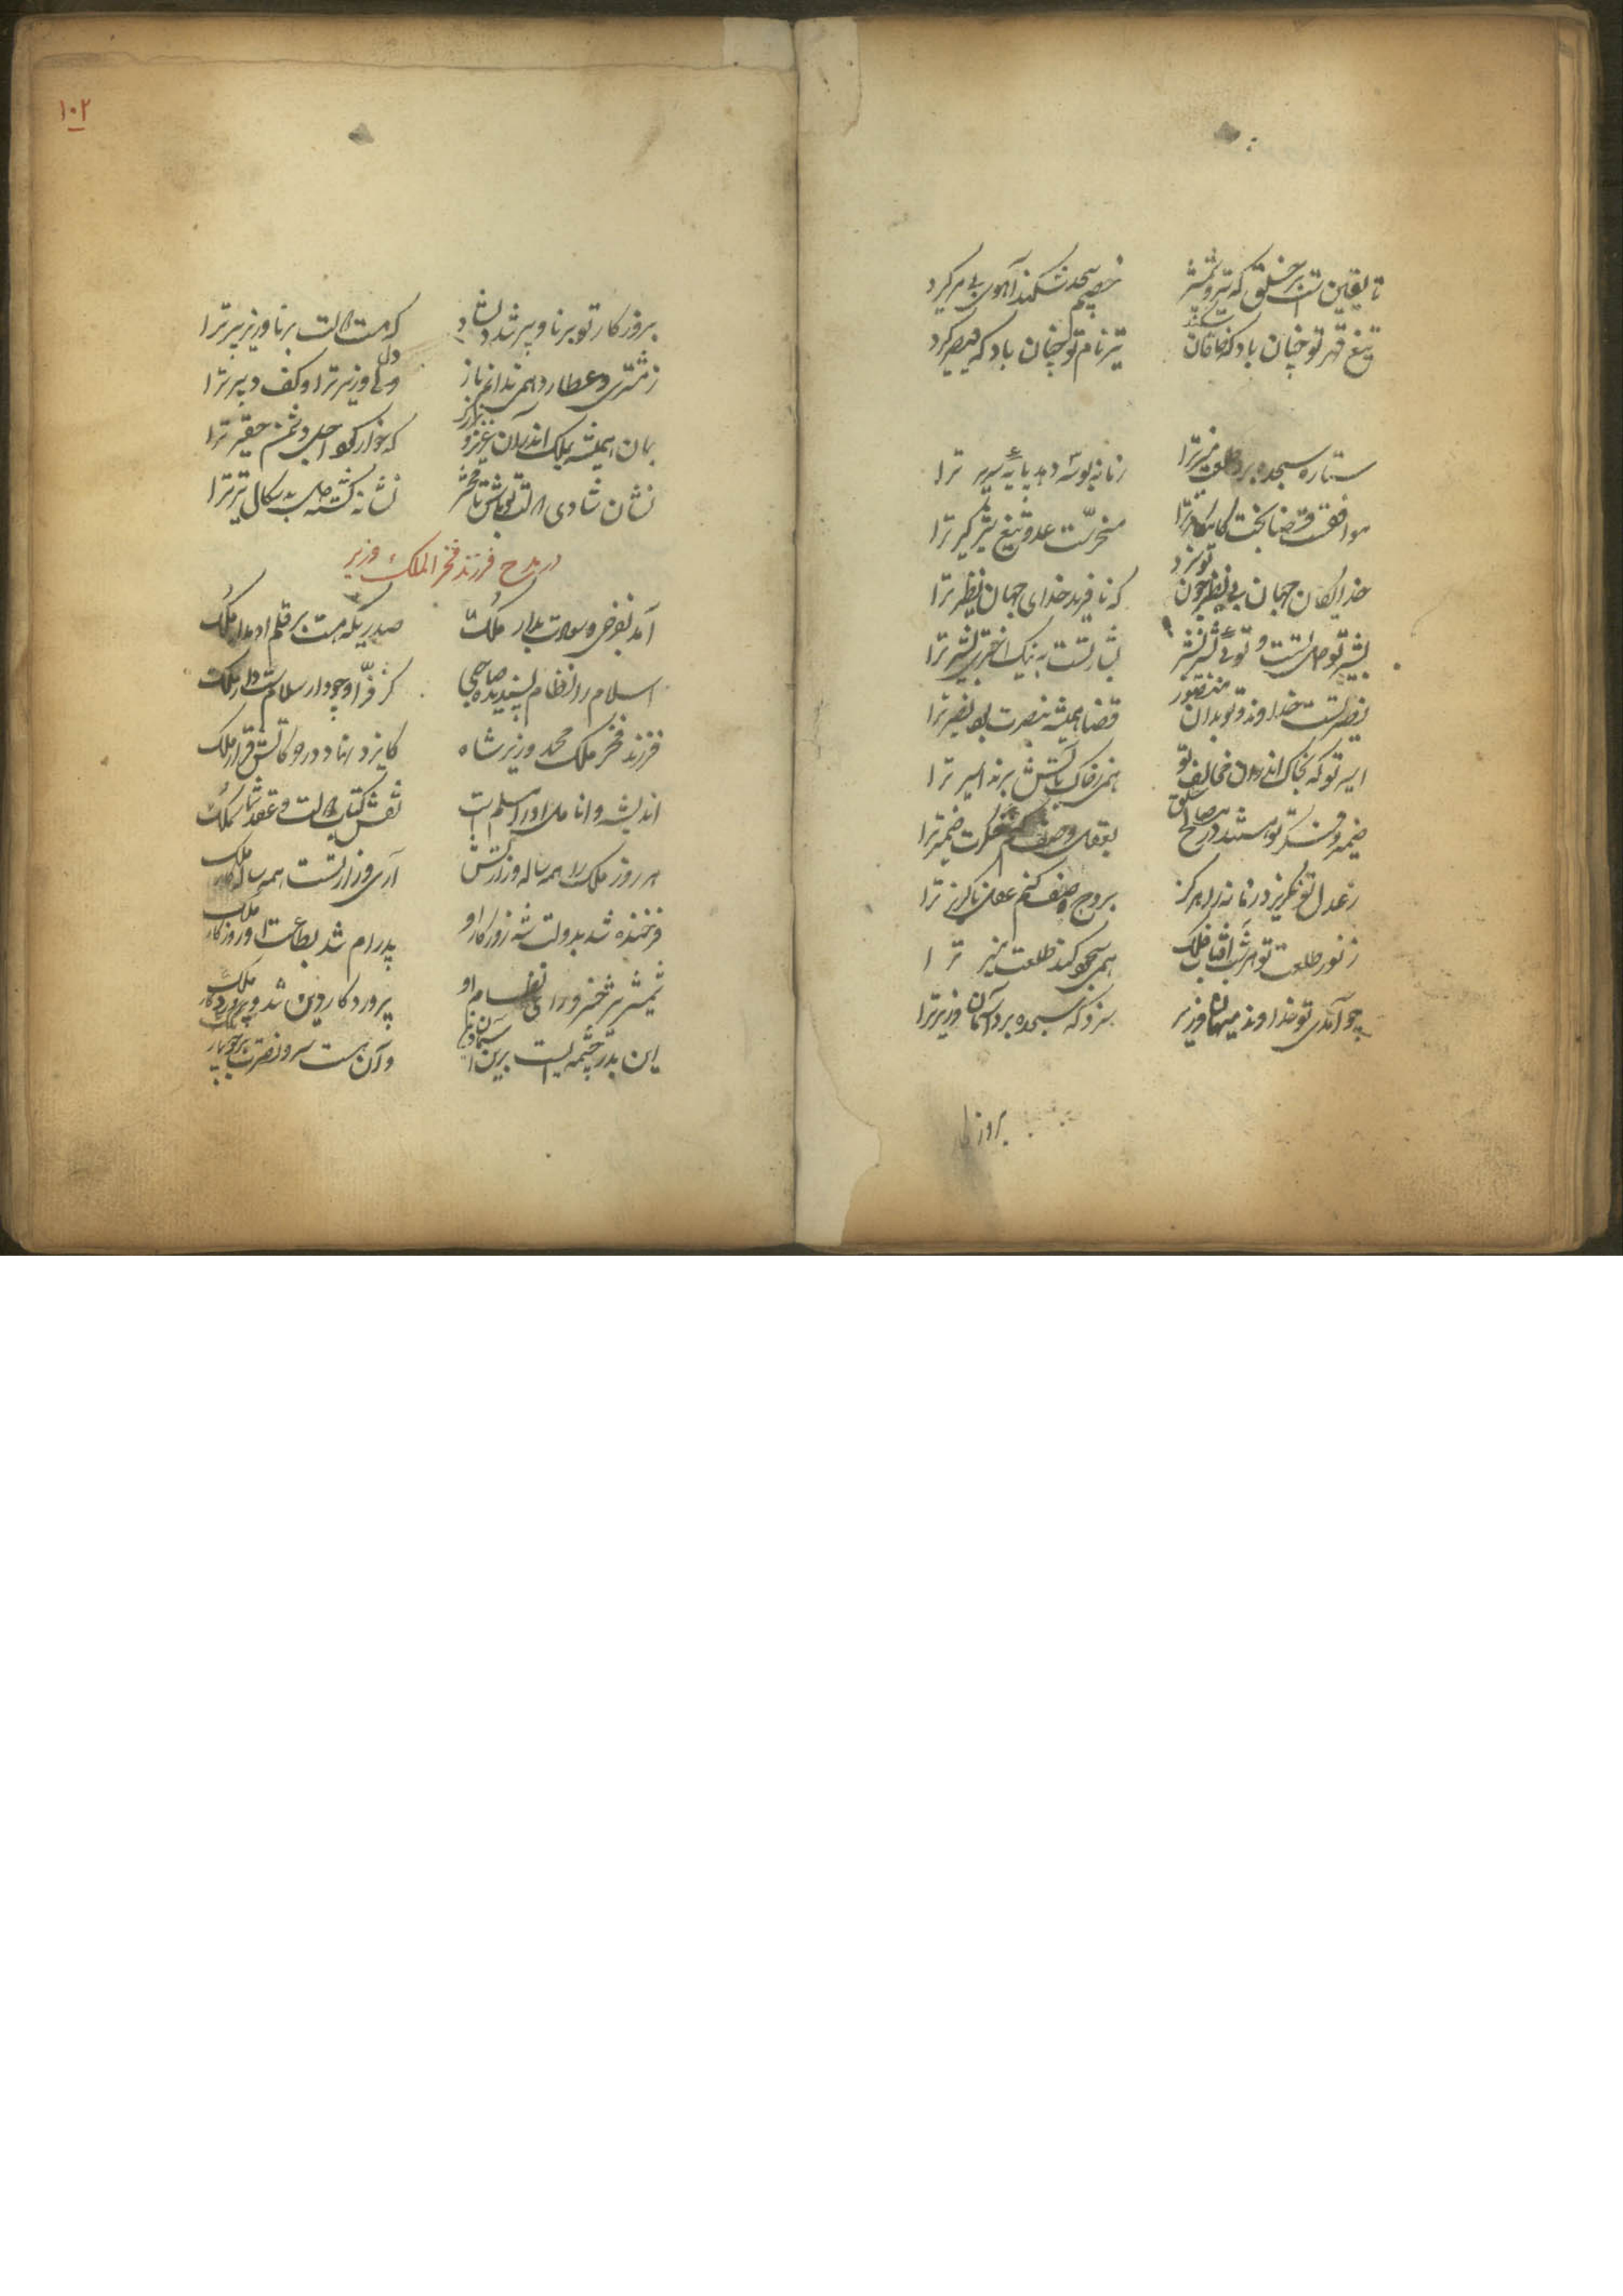 تا یقین است بر خلق که تیر و شمشیر
خصم بیحد شکند آهوی بی مر گیرد
تیغ قهر تو چنان باد که خاقان شکند
تیر نام تو چنان باد که قیصر گیرد
ستاره سجده برد طلعت منیر ترا
زمانه بوسه دهد پایه سریر ترا
موافقست قضا بخت کامکار ترا
مسخرست عدو تیغ شیرگیر ترا
خدایگان جهان بی نظیر چون تو نزد
که نافرید خدای جهان نظیر ترا
بشارتست به نیک اختری بشیر ترا
نصیر تست خداوند و تو بدان منصور
قضا همیشه بنصرت بود نصیر ترا
اسیر تو که بخاک اندرون مخالف تو
همی ز خاک بآتش برند اسیر ترا
ضمیر و فکرت تو هستند در مصالح خلق
بعقل وصف کنم فکرت ضمیر ترا
ز عدل تو نگریز در زمانه را هرگز
بروح وصف کنم عدل ناگزیر ترا
ز نور طلعت تو هر شب آفتاب فلک
همی سجود کند طلعت منیر ترا
چو آمدی تو خداوند میهمان وزیر
سزد که سجده برد آسمان وزیر ترا
بروزکار
۱۰۲
بروزکار تو برنا و پیر شد دلشاد
که هست دولت برنا وزیر پیر ترا
ز مشتری و عطارد همی ندانم باز
دل وزیر ترا و کف دبیر ترا
بمان همیشه بملک اندرون عزیز و بزرگ
که خوار کرد اجل دشمن حقیر ترا
نشان شادی دولت تو باش تا محشر
نشانه گشته دل بدسگال تیر ترا
در مدح فرزند فخر الملک وزیر
آمد بفرخی و سعادت بدار ملک
صدریکه هست بر قلم او مدار ملک
اسلام را نظام پسندیده صاحبی
کز فر او چو دار سلامست دار ملک
فرزند فخر ملک محمد وزیر شاه
کایزد نهاد در حرکاتش قرار ملک
اندیشه و انامل او را مسلم است
نقش کتاب دولت و عقد شمار ملک
هر روز ملک را همه ساله وزارتش
آری وزارتست همه ساله کار ملک
فرخنده شد بدولت شه روزکار او
پدرام شد بطاعت او روزکار ملک
شمشیر شه خسرو و رای نظام او
پروردکار دین شد و پروردکار ملک
این بدر چشمه ایست برین آسمان دین
وآن هست سرو نصرت بر جویبار ملک